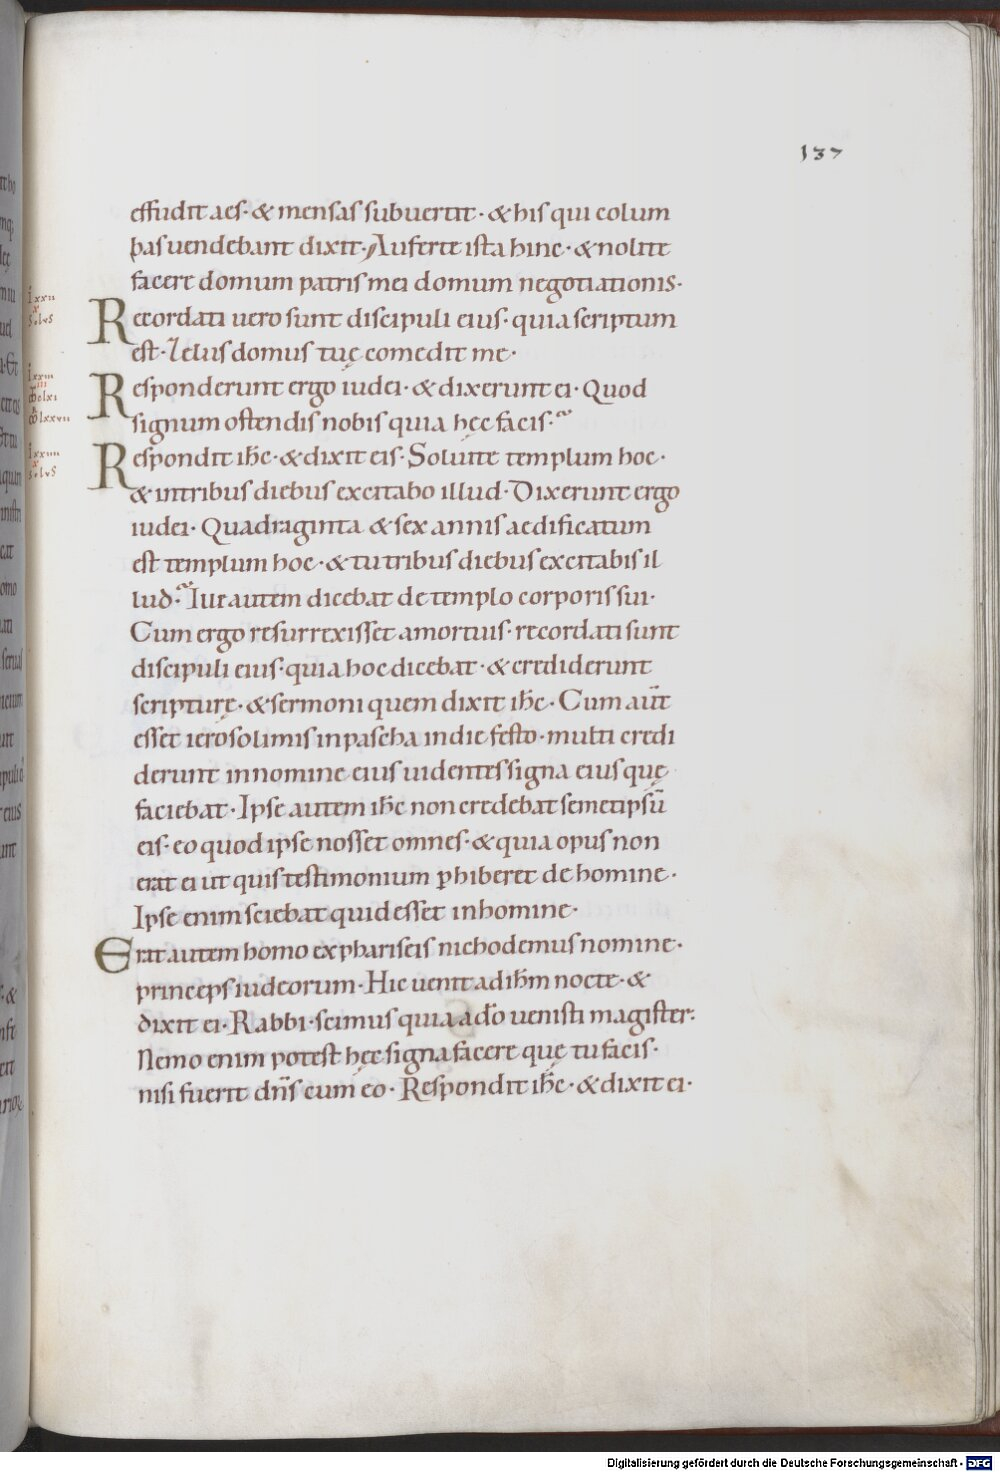 137
effudit aes· & mensas subuertit· & his qui colum
bas uendebant dixit· Auferte ista hinc· & nolite
facere domum patris mei domum negotiationis·
Recordati uero sunt discipuli eius· quia scriptum
est· Zelus domus tuę comedit me·
Responderunt ergo iudei· & dixerunt ei· Quod
signum ostendis nobis quia hęc facis·
Respondit ihc̄· & dixit eis· Soluite templum hoc·
& in tribus diebus excitabo illud· Dixerunt ergo
iudei· Quadraginta & sex annis aedificatum
est templum hoc· & tu tribus diebus excitabis il
lud· Ille autem dicebat de templo corporis sui·
Cum ergo resurrexisset a mortuis· recordati sunt
discipuli eius· quia hoc dicebat· & crediderunt
scripturę· & sermoni quem dixit ihc̄· Cum aut̄
esset ierosolimis in pascha in die festo· multi credi
derunt in nomine eius uidentes signa eius quę
faciebat· Ipse autem ihc̄ non credebat semetipsū
eis· eo quod ipse nosset omnes· & quia opus non
erat ei ut quis testimonium phiberet de homine·
Ipse enim sciebat quid esset in homine·
Erat autem homo ex phariseis nichodemus nomine·
princeps iudeorum· Hic uenit ad ihm̄ nocte· &
dixit ei· Rabbi· scimus quia a dō uenisti magister·
Nemo enim potest hęc signa facere quę tu facis·
nisi fuerit dn̄s cum eo· Respondit ihc̄· & dixit ei·
Digitalisierung gefördert durch die Deutsche Forschungsgemeinschaft - DFG